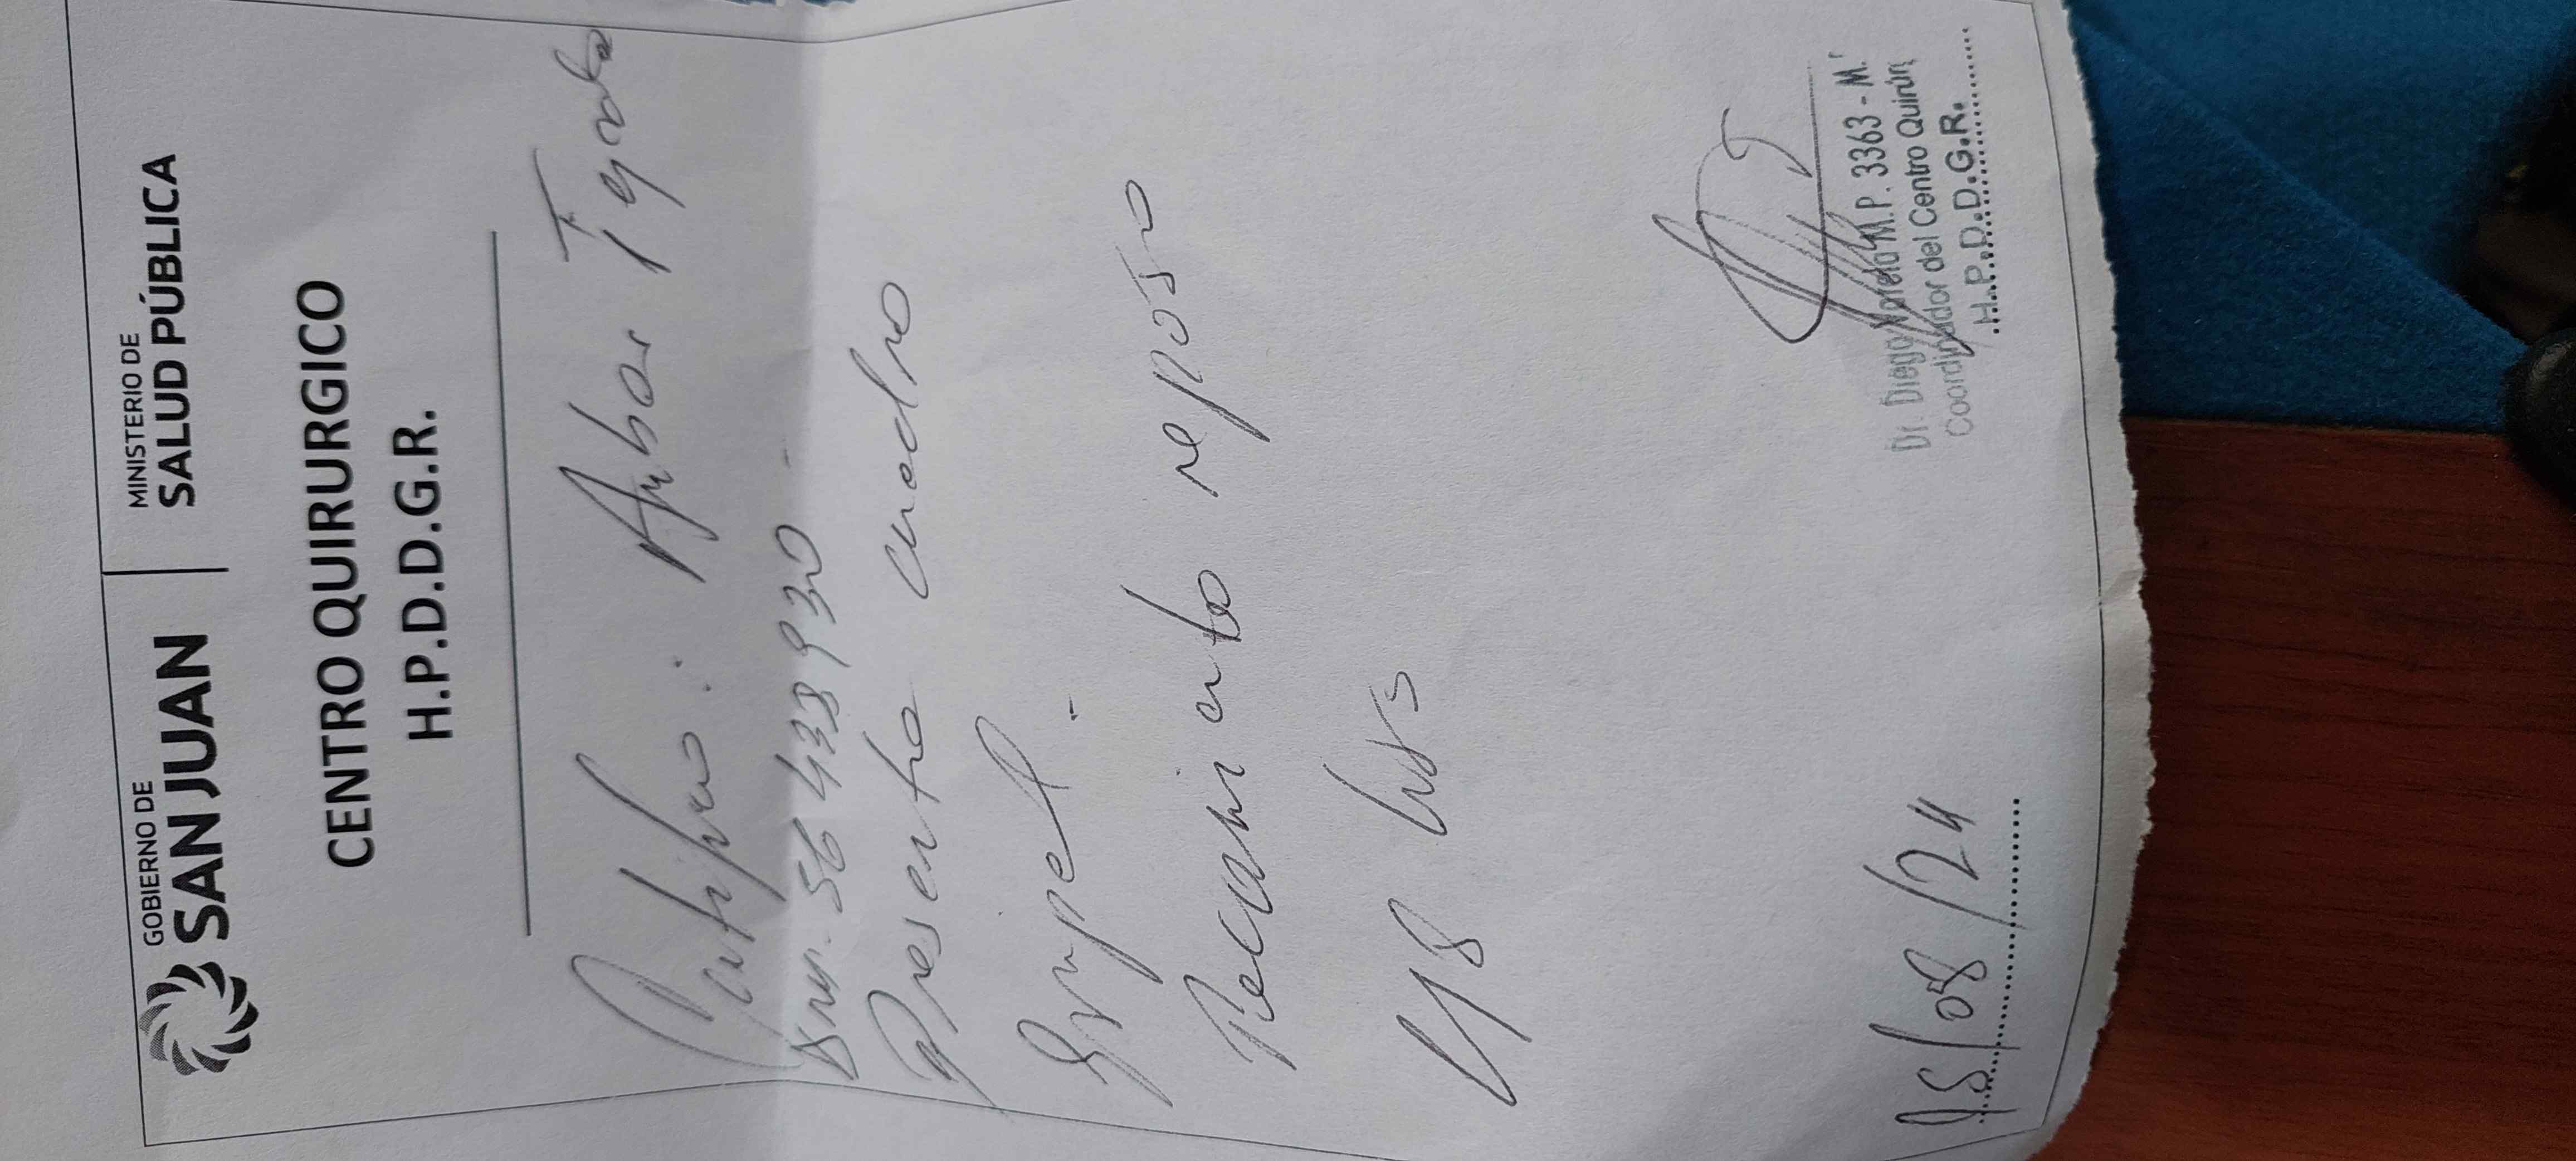 GOBIERNO DE
SAN JUAN
MINISTERIO DE
SALUD PÚBLICA
CENTRO QUIRURGICO
H.P.D.D.G.R.
Certifico: Ambar Tejada
DNI. 56 438 930
Presenta cuadro
gripal.
Recomiento reposo
48 hrs
15/08/24
Dr. Diego Varela M.P. 3363 - M.
Coordinador del Centro Quirúr
H.P.D.D.G.R.